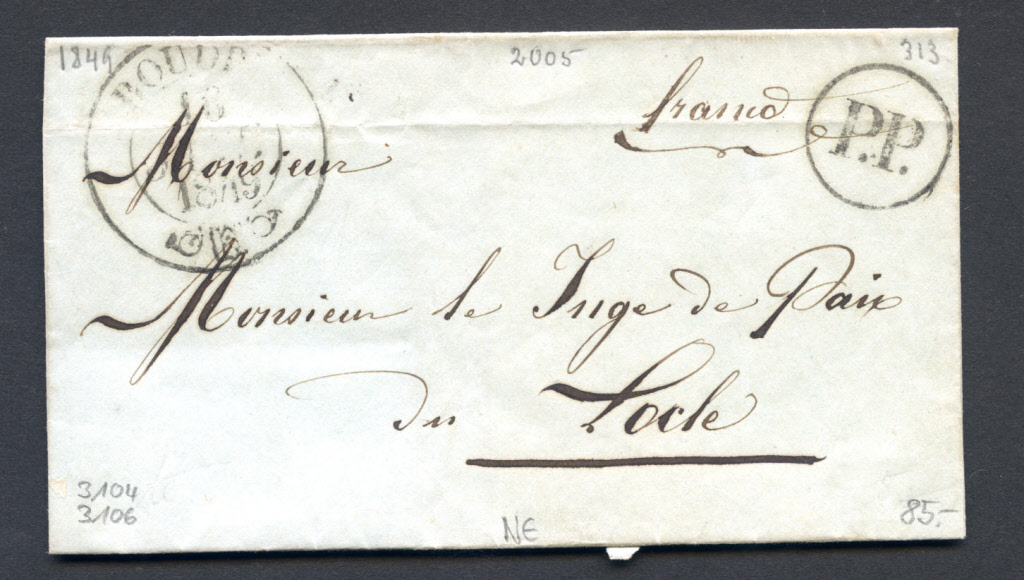 1849 2005 313
BOUDRY
18
1849
franco
P.P.
Monsieur
Monsieur le Juge de Paix
du Locle
3104
3106
NE
85.-